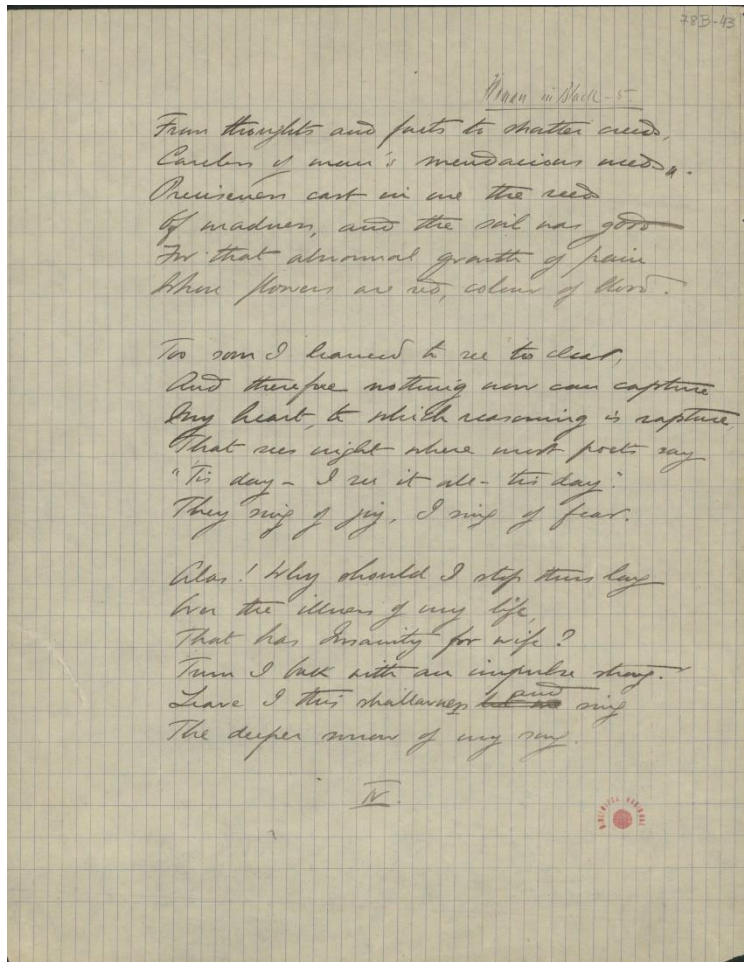 78B-43
Woman in Black - 5
From thoughts and facts to shatter creeds,
Careless of man's mendacious needs,
Preciseness cast in me the seed
Of madness, and the soil was good
For that abnormal growth of pain
Whose flowers are red, colour of blood.
Too soon I learned to see too clear,
And therefore nothing now can capture
My heart, to which reasoning is rapture,
That sees night where most poets say
"'Tis day - I see it all - 'tis day".
They sing of joy, I sing of fear.
Alas! Why should I stop thus long
Over the illness of my life,
That has Insanity for wife?
Turn I back with an impulse strong.
Leave I this shallowness and sing
The deeper sorrow of my song.
IV.
BIBLIOTECA NACIONAL